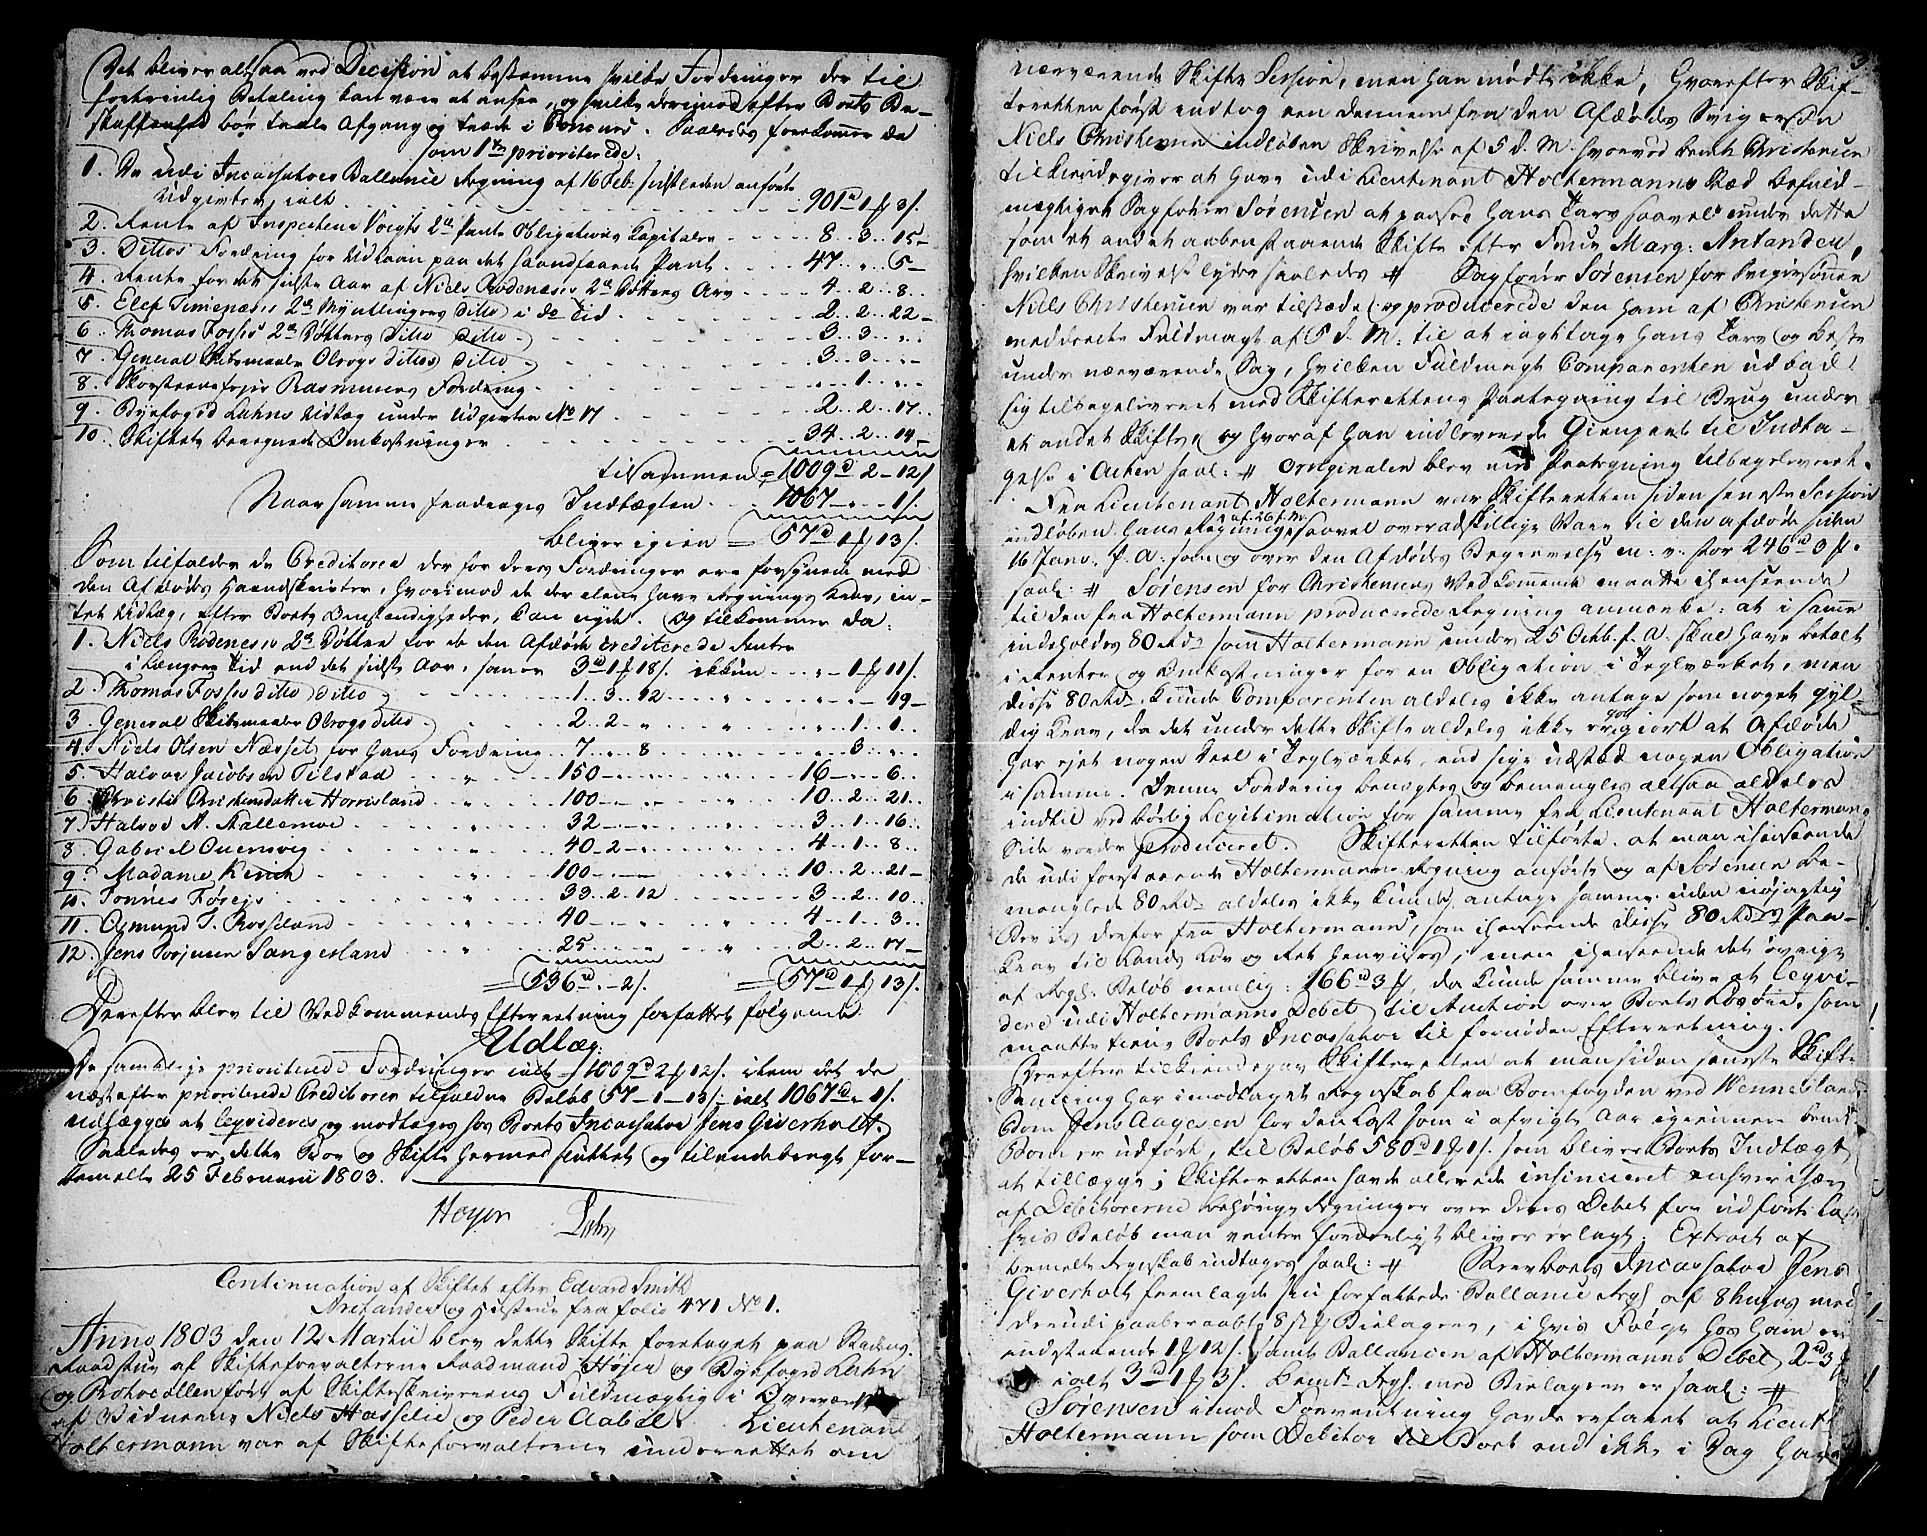 Det bliver altsaa ved Decision at bestemme hvilke Fordringer der til
fortrinlig Betaling kan være at ansee, og hvilke derimod efter Boets Be-
skaffenhed bør taale Afgang og træde i Concurs. Saaledes forekommer da
som 1te prioriterede:
1. De udi Incassators Ballance Regning af 16 Feb: sidstleden anførte
Udgivter, ialt . . . 901d 1 f 3 s.
2. Rente af Inspecteur Voigts 2de Pante Obligations Kapitaler . . . 8.. 3.. 15-
3. Ditios Fordring for Udlaan paa det haandfaaede Pant . . . 47. „. 5-
4. Rente for det sidste Aar af Niels Rødenæses 2de Døttres Arv . . . 4.. 2.. 8..
5. Elef Timenæses 2de Myndtlinges Ditto i do Tid . . . 2.. 2.. 22-
6. Thomas Fosses 2de Døttres Ditto Ditto . . . 3.. 3.. „..
7. General Krigsmaaler Olrogs Dittos Ditto . . . 3.. 3.. „-
8. Skorsteensfejer Rasmusens Fordring . . . „.. 1.. „..
9. Byefoged Lahns Udlæg under Udgivten No 17 . . . 2.. 2.. 17..
10. Skiftets beregnede Omkostninger . . . 34.. 2.. 14-
tilsammen = 1009d 2 - 12 s
Naar samme fradrages Indtægten . . . 1067 „ . 1 s.
bliver igien = 57d 1 f 13 s.
Som tilfalder de Creditorer der for deres Fordringer ere forsynede med
den Afdødes Haandskrivter, hvorimod de der alene have Regnings Krav, in-
tet Udlæg, efter Boets Omstændigheder, kan nyde. Og tilkommer da:
1. Niels Rødenæses 2de Døttre for de den Afdøde crediterede Renter
i længere Tid end det sidste Aar, samer 3d 1 f 18 s. ikkun . . „ - 1 f 11 s.
2. Thomas Fosses Ditto Ditto . . . 1.. 3.. 12 . . . „ . „ - 19-
3. General Krigsmaaler Olrogs Ditto . . . 2.. 2.. „ . . . „ . 1. 1.
4. Niels Olsen Næsset for hans Fordring . . 7.. „.. 8 . . . „.. 3.. „..
5. Halvor Jacobsen Tilstad . . . 150 - . . . 16 - „ .. 6..
6. Christie Christensdatter Horrisland . . . 100 - . . . 10.. 2.. 21..
7. Halvor A. Aallemoe . . . 32 - . . . 3.. 1.. 16..
8. Gabriel Ouensvig . . . 40 - 2 - . . . 4.. 1.. 8..
9. Madame Kirich . . . 100 - . . . 10.. 2.. 21-
10. Tønnes Føreid . . . 33.. 2.. 12 . . . 3.. 2.. 10..
11. Osmund T. Rosseland . . . 40 - . . . 4.. 1.. 3..
12. Jens Torjusen Sangesland . . . 25 . . . 2.. 2.. 17-
= 536d „ - 2 s. = 57d 1 f 13 s.
Derefter blev til Vedkommendes Efterretning forfattet følgende
Udlæg:
De samtlige prioriterede Fordringer ialt 1009d 2 f 12 s. item det de
næst efter prioriterede Creditorer tilfaldne Beløb 57 - 1 - 13 s. ialt 1067d „ 1 s.
udlægges at leqvideres og modtages hos Boets Incassator Jens Giverholt.
Saaledes er dette Boe og Skifte hermed sluttet og tilendebragt for-
bemelte 25 Februarii 1803.
Høyer Lahn
Continuation af Skiftet efter Edvard Smith
Arefander og Hustrue fra folio 471 No 1.
Anno 1803 den 12 Martii blev dette Skifte foretaget paa Stadens
Raadstue af Skifteforvalterne Raadmand Høyer og Byefoged Lahn
og Protocollen ført af Skifteskriverens Fuldmægtig i Overværelse
af Vidnerne Niels Hasselie og Peder Aabel. Lieutenant
Holtermann var af Skifteforvalterne underrettet om
3
nærværende Skifte Session, men han mødte ikke, hvorefter Skif-
teretten først indtog een dennem fra den Afdødes Svigersøn
Niels Christensen indløben Skrivelse af 5 d. M. hvorved bemte Christensen
tilkiendegiver at have udi Lieutenant Holtermanns Stæd befuld-
mægtiget Sagfører Sørensen at paasee hans Tarv saavel under dette
som et andet aabenstaaende Skifte efter Frue Marg: Anfanden,
hvilken Skrivelse lyder saaledes # Sagfører Sørensen for Svigersønnen
Niels Christensen var tilstæde og producerede den ham af Christensen
meddeelte Fuldmagt af 5 d. M. til at iagttage hans Tarv og beste
under nærværende Sag, hvilken Fuldmagt Comparenten udbad
sig tilbageleveret med Skifterettens Paategning til Brug under
et andet Skifte, og hvoraf han indleverede Gienpart til Indta-
gelse i Acten saal: # Originalen blev med Paategning tilbageleveret.
Fra Lieutenant Holtermann var Skifteretten siden seneste Session
indløben hans Regning af 26 f. M. saavel over adskillige Vare til den afdøde siden
16 Janv. f. A. som og over den Afdødes Begravelse m. v. stor 246d 3 f.
saal: # Sørensen for Christensens Vedkommende maatte ihenseende
til den fra Holtermann producerede Regning anmærke: at i samme
indeholdes 80 Rd. som Holtermann under 25 Octb. f. A. skal have betalt
i Renter og Omkostninger for en Obligation i Teglværket, men
disse 80 Rd. kunde Comparenten aldeles ikke antage som noget gyl-
dig Krav, da det under dette Skifte aldeles ikke er godgiort at Afdøde
har ejet nogen Deel i Teglværket, end sige udstæd nogen Obligation
i samme. Denne Fordring benægtes og bemengles altsaa aldeles
indtil ved børlig Legitimation for samme fra Lieutenant Holtermanns
Side vorder produceret. Skifteretten tilførte: at man ihenseende
de udi forestaaende Holtermanns Regning anførte og af Sørensen be-
menglede 80 Rd. aldeles ikke kunde antage samme uden nøjagtig
Beviis derfor fra Holtermann, som ihenseende disse 80 Rdr.s Paa-
krav til Lands Lov og Ret henvises, men ihenseende det øvrige
af Regs. Beløb nemlig: 166d 3 f, da kunde samme blive at leqvi-
dere udi Holtermanns Debet til Auction over Boets Løsøre, som
maatte tiene Boets Incassator til fornøden Efterretning.
Derefter tilkiendegav Skifteretten at man siden seneste Skifte
Samling har imodtaget Regnskab fra Bomfogden ved Wennesland
Bom Jens Aagesen for den Last som i afvigte Aar igiennem bemte
Bom er udført, til Beløb 580d 1 f 1 s. som bliver Boets Indtægt
at tillægge; Skifteretten havde allerede insinueret enhver især
af Debitorerne behørige Regninger over deres Debet for udført Last
hvis Beløb man venter forderligst bliver erlagt. Extract af
bemelte Regnskab indtages saal: # Sterboets Incassator Jens
Giverholt fremlagde sin forfattede Ballance Regs af 8 hujus med
derudi paaberaabte 8 st. Bielager, i hvis Følge hos ham er
indestaaende 1 f 12 s. samt Ballancen af Holtermanns Debet 2d 3 f
ialt 3d 1 f 3 s. bemte Regs. med Bielagene er saal: #
Sørensen imod Forventning havde erfaret at Lieut:
Holtermann som Debitor til Boet end ikke i Dag havde